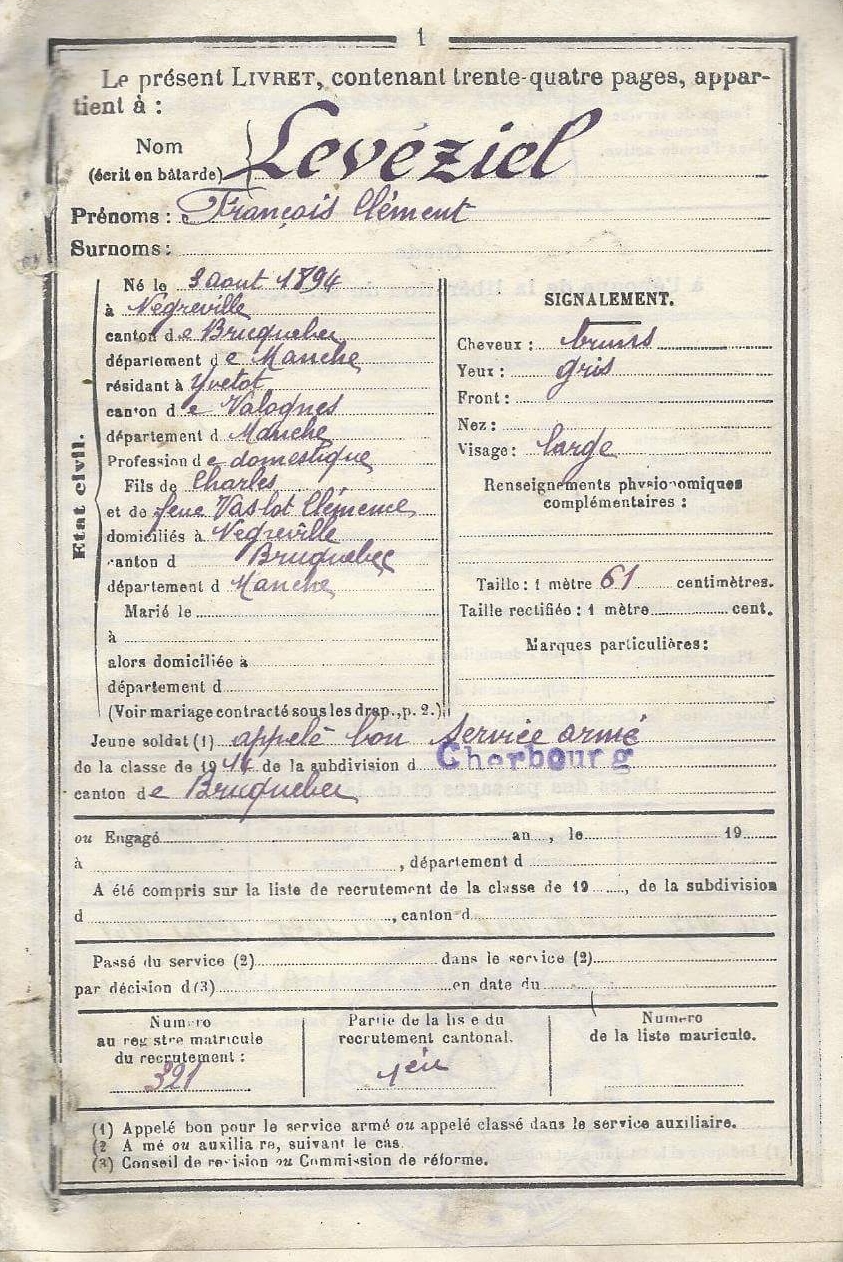 1
Le présent LIVRET, contenant trente-quatre pages, appar-
tient à :
Nom
(écrit en bâtarde) Levéziel
Prénoms : François Clément
Surnoms :
Etat civil.
Né le 3 août 1894
à Négreville
canton de Bricquebec
département de Manche
résidant à Yvetot
canton de Valognes
département d Manche
Profession de domestique
Fils de Charles
et de feue Vaslot Clémence
domiciliés à Négreville
canton d Bricquebec
département d Manche
Marié le
à
alors domiciliée à
département d
(Voir mariage contracté sous les drap., p. 2.)
SIGNALEMENT.
Cheveux : bruns
Yeux : gris
Front :
Nez :
Visage : large
Renseignements physionomiques
complémentaires :
Taille : 1 mètre 61 centimètres.
Taille rectifiée : 1 mètre cent.
Marques particulières :
Jeune soldat (1) appelé bon service armé
de la classe de 1914 de la subdivision d Cherbourg
canton de Bricquebec
ou Engagé an , le 19
à , département d
A été compris sur la liste de recrutement de la classe de 19 , de la subdivision
d , canton d
Passé du service (2) dans le service (2)
par décision d (3) en date du
Numéro
au registre matricule
du recrutement :
321
Partie de la liste du
recrutement cantonal.
1ère
Numéro
de la liste matricule.
(1) Appelé bon pour le service armé ou appelé classé dans le service auxiliaire.
(2 A mé ou auxilia re, suivant le cas.
(3) Conseil de revision ou Commission de réforme.